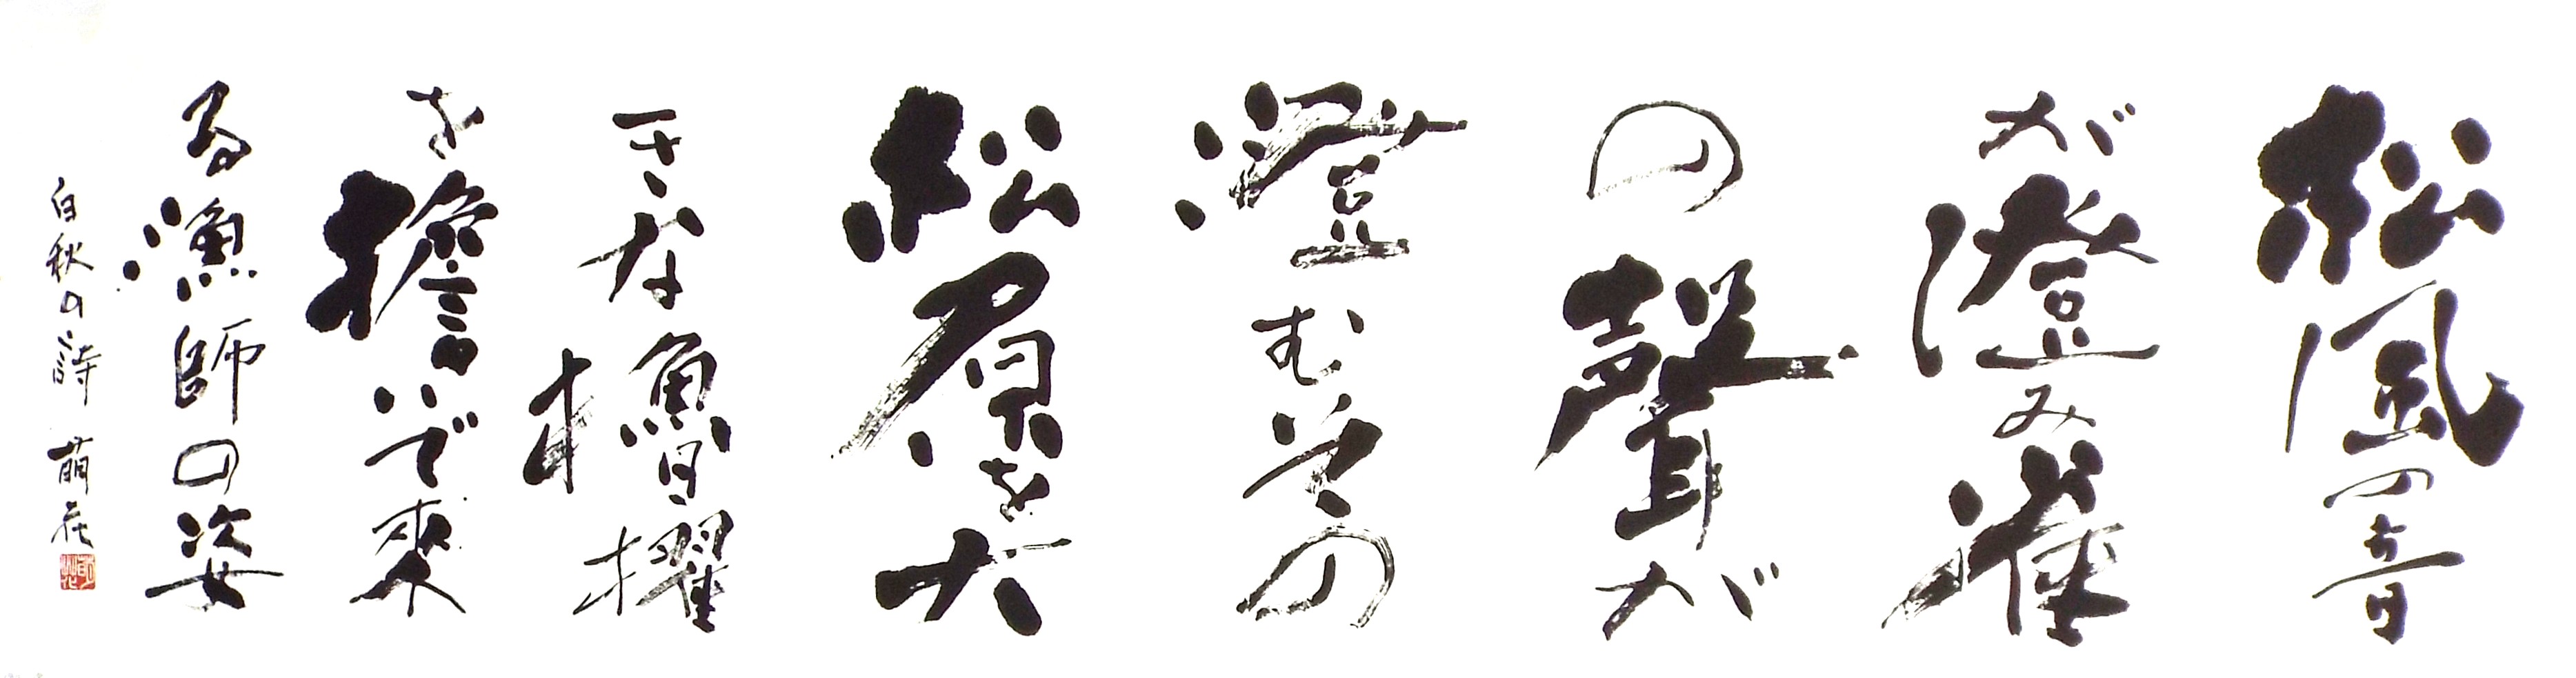 松風の音
が澄み雀
の聲が
澄むその
松原を大
きな櫓櫂
を擔いで來
る漁師の姿
白秋の詩 萌花